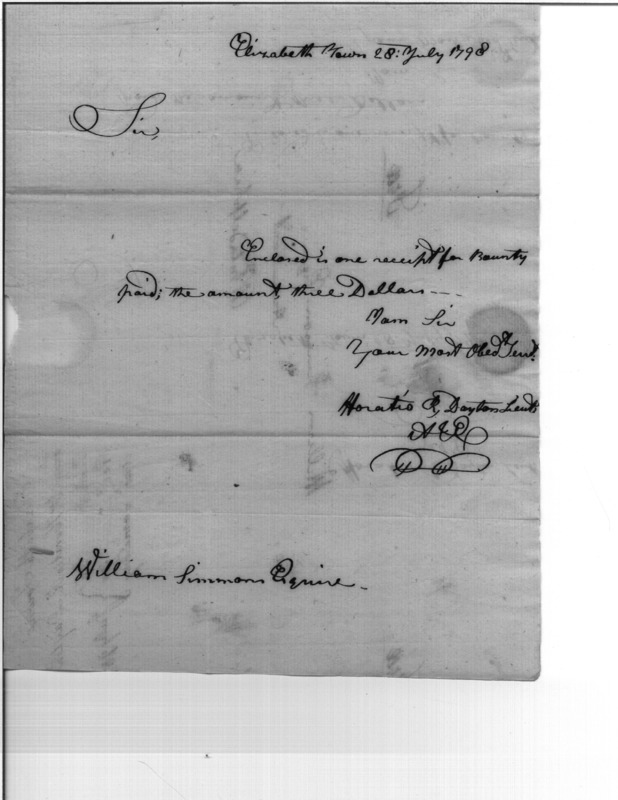 Elizabeth Town 28: July 1798
Sir,
Enclosed is one receipt for Bounty
paid; the amount, three Dollars ---
I am Sir
Your Most Obedt Servt.
Horatio R, Dayton Lieut.
William Simmons Esquire -